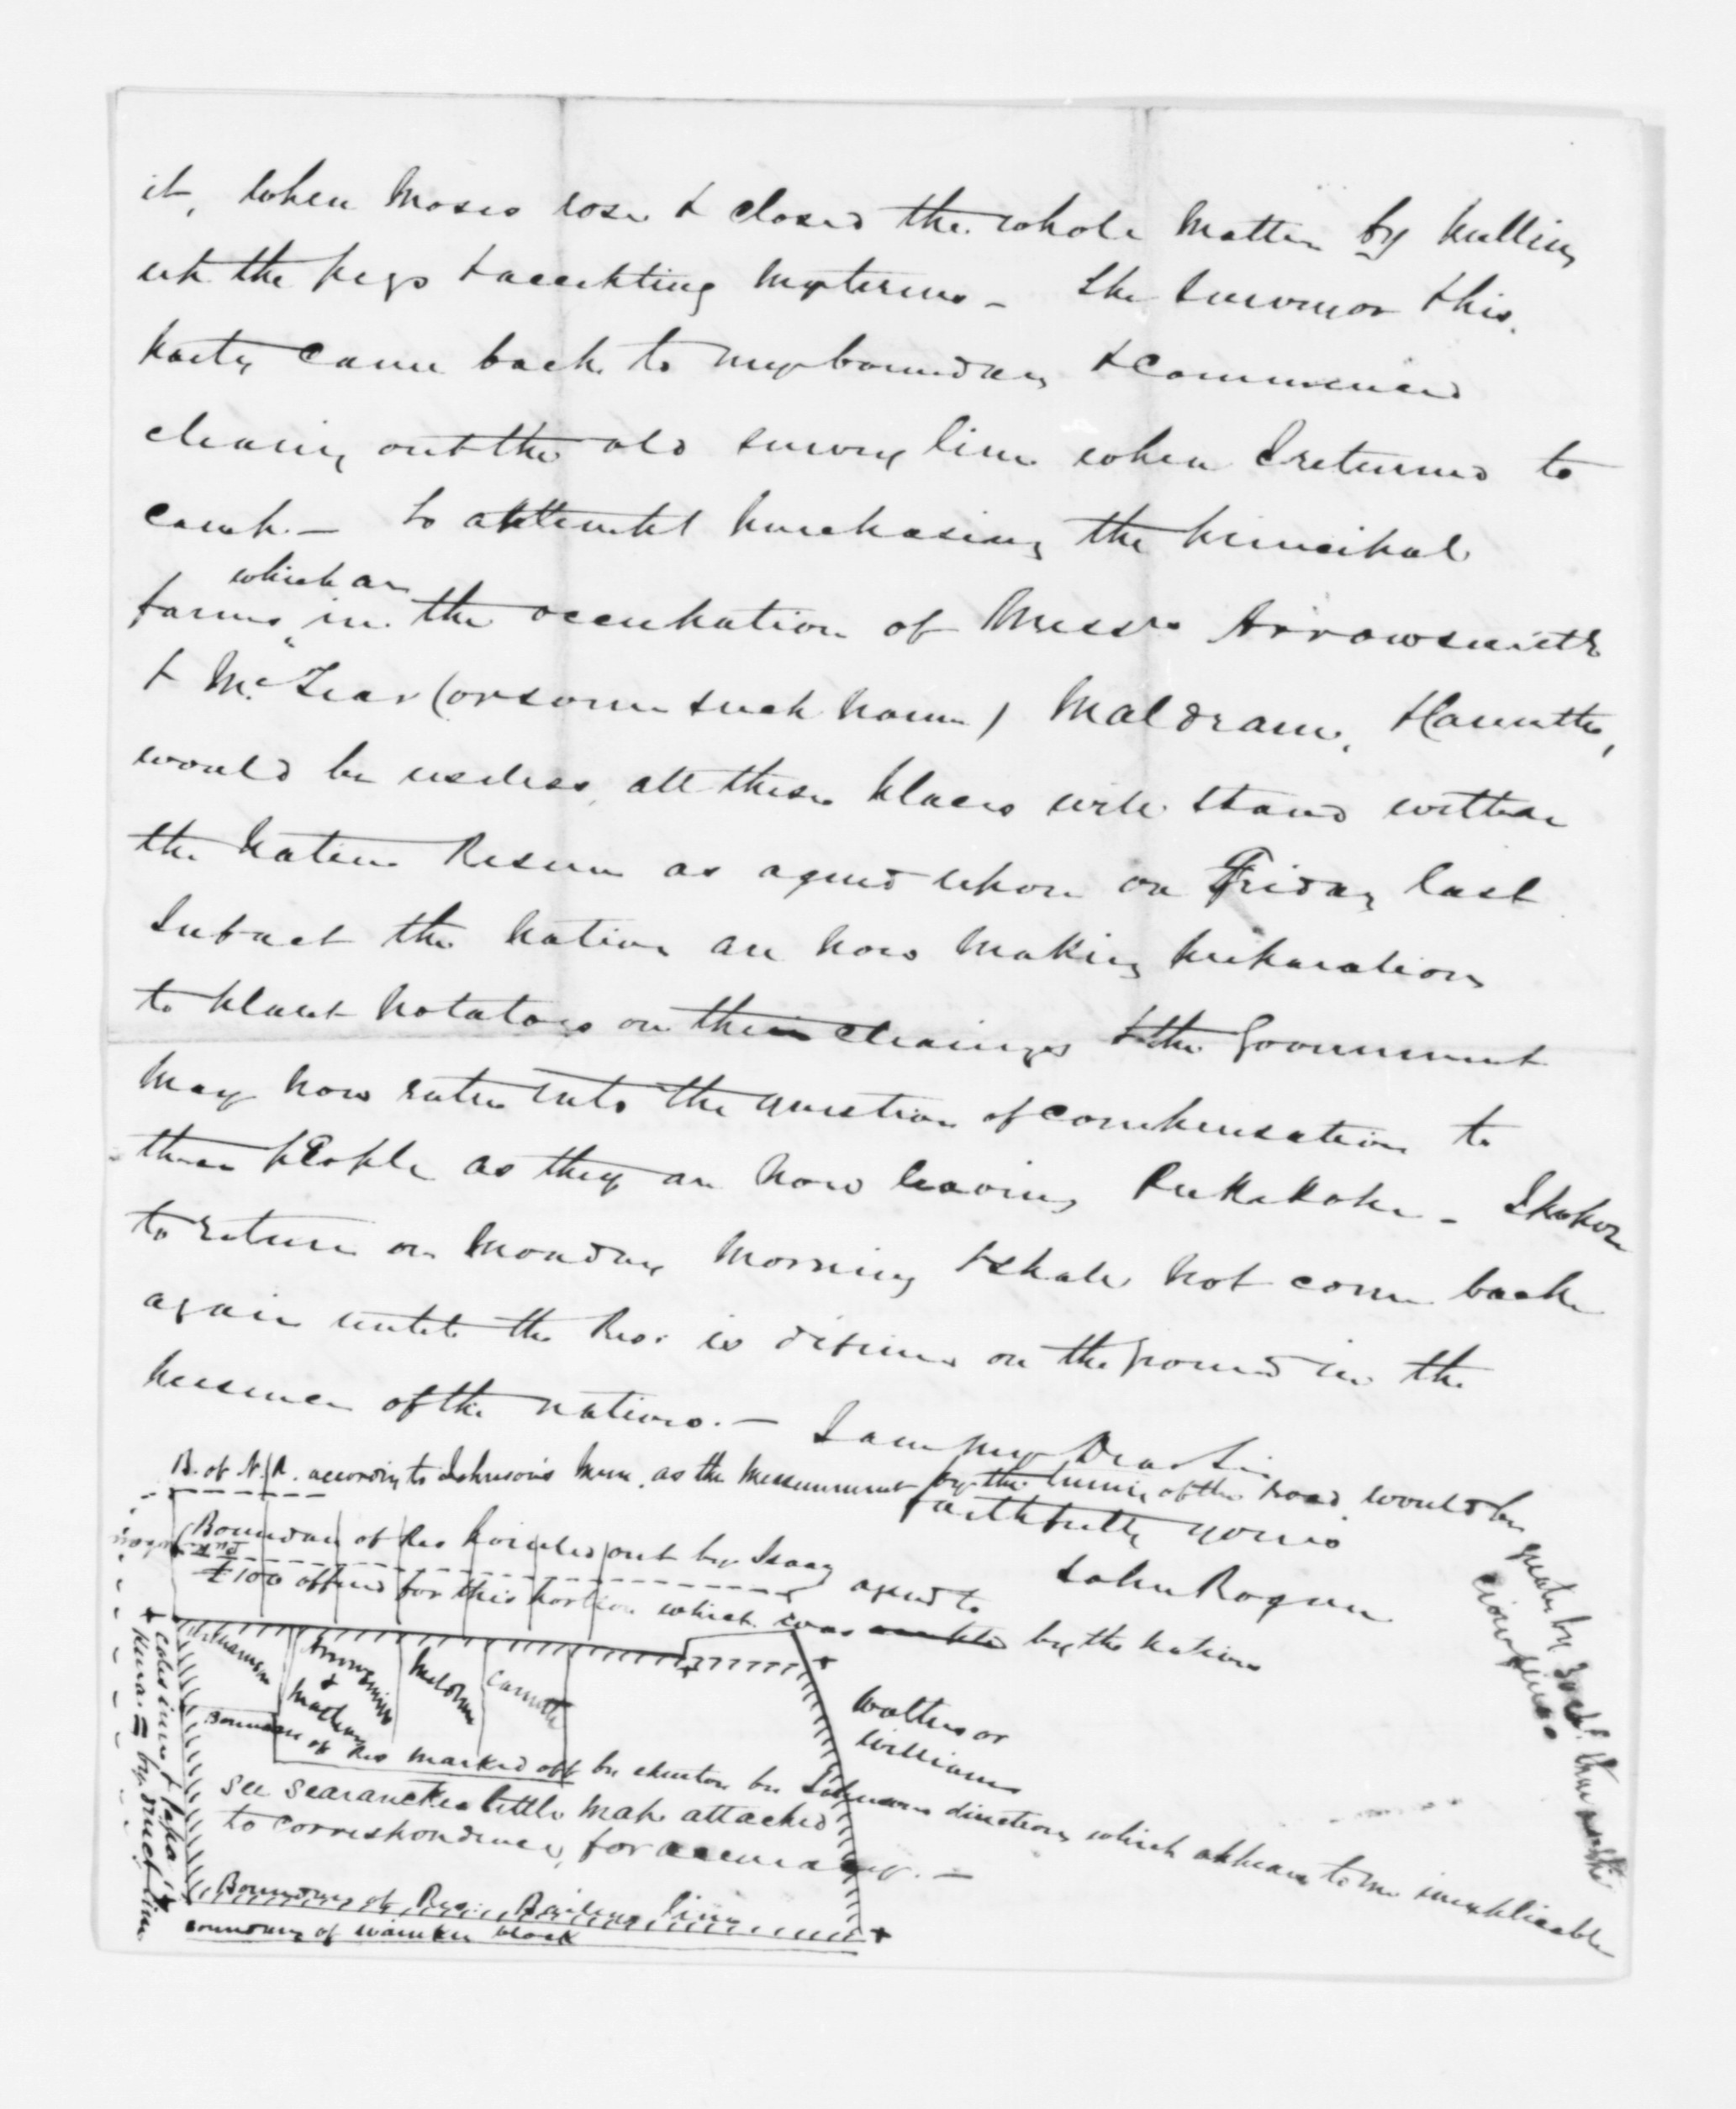 it, when Moses rose & closed the whole matter by pulling
up the pegs & accepting my terms – The Surveyor & his
party came back to my boundary & commenced
clearing out the old survey line when I returned to
camp. – To attempt purchasing the principal
which are
farms in the occupation of Messrs Arrowsmith
& McLear (or some such name) Maldram,
would be useless, all these places will stand within
the Native Reserve as agreed upon on Friday last
In fact the natives are now making preparations
to plant potatoes on their clearings & the Government
may now enter into the question of compensation to
these people as they are now leaving Pukekohe – I propose
to return on Monday morning & shall not come back
again until the Res: is defined on the ground in the
presence of the natives. –
I am my Dear Sir
faithfully yours
John Rogan
B. of N. R. according to Johnson's as the measurement by the turning of the road would be greater by than
Boundary of Res pointed out by Isaac and
£100 offered for this portion which was agreed to by the natives
Arrowsmith
&
Meldrum
Walters or
Williams
Boundary of Res marked off by by Johnsons directions which appears to me inexplicable
see Searanckes little map attached
to correspondence, for accuracy. –
Boundary of Res:
line
boundary of Waiuku block
by direct line